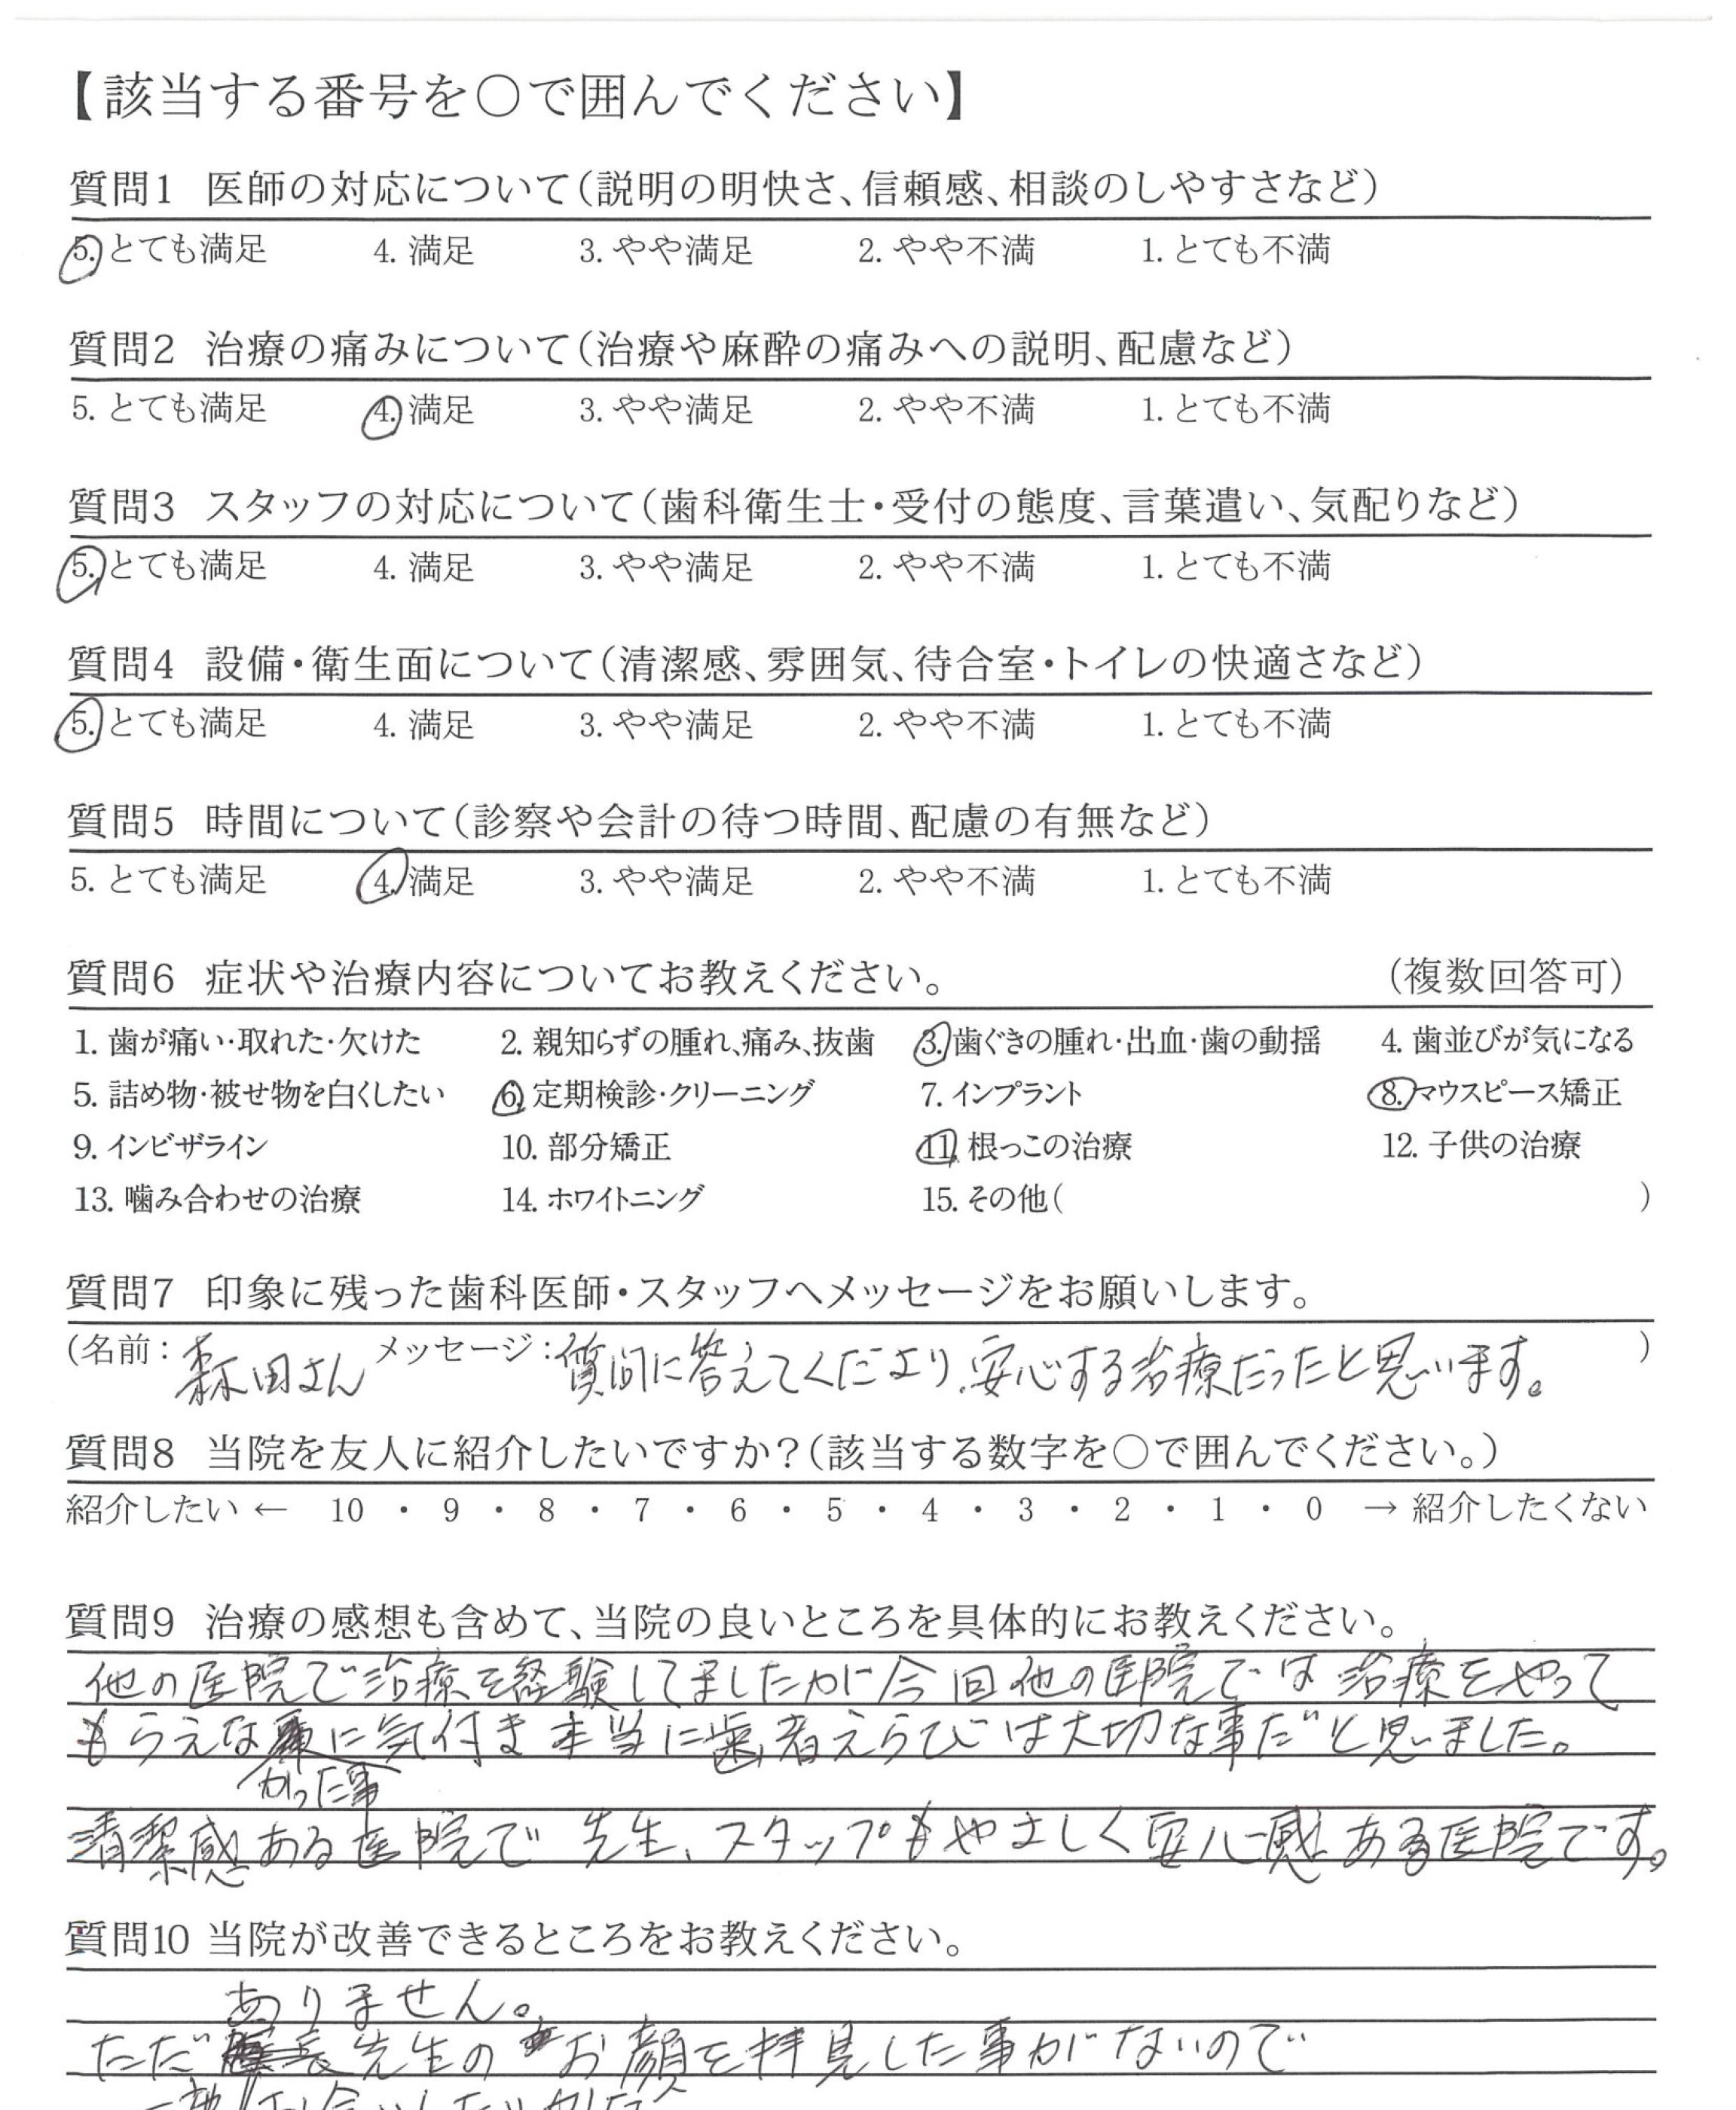 【該当する番号を〇で囲んでください】
質問1 医師の対応について(説明の明快さ、信頼感、相談のしやすさなど)
5. とても満足 4. 満足 3. やや満足 2. やや不満 1. とても不満
質問2 治療の痛みについて(治療や麻酔の痛みへの説明、配慮など)
5. とても満足 4. 満足 3. やや満足 2. やや不満 1. とても不満
質問3 スタッフの対応について(歯科衛生士・受付の態度、言葉遣い、気配りなど)
5. とても満足 4. 満足 3. やや満足 2. やや不満 1. とても不満
質問4 設備・衛生面について(清潔感、雰囲気、待合室・トイレの快適さなど)
5. とても満足 4. 満足 3. やや満足 2. やや不満 1. とても不満
質問5 時間について(診察や会計の待つ時間、配慮の有無など)
5. とても満足 4. 満足 3. やや満足 2. やや不満 1. とても不満
質問6 症状や治療内容についてお教えください。 (複数回答可)
1. 歯が痛い・取れた・欠けた 2. 親知らずの腫れ、痛み、抜歯 3. 歯ぐきの腫れ・出血・歯の動揺 4. 歯並びが気になる
5. 詰め物・被せ物を白くしたい 6. 定期検診・クリーニング 7. インプラント 8. マウスピース矯正
9. インビザライン 10. 部分矯正 11. 根っこの治療 12. 子供の治療
13. 噛み合わせの治療 14. ホワイトニング 15. その他( )
質問7 印象に残った歯科医師・スタッフへメッセージをお願いします。
(名前: 森田さん メッセージ: 質問に答えてくださり、安心する治療だったと思います。 )
質問8 当院を友人に紹介したいですか?(該当する数字を〇で囲んでください。)
紹介したい ← 10 ・ 9 ・ 8 ・ 7 ・ 6 ・ 5 ・ 4 ・ 3 ・ 2 ・ 1 ・ 0 → 紹介したくない
質問9 治療の感想も含めて、当院の良いところを具体的にお教えください。
他の医院で治療を経験してましたが今回他の医院では治療をやって
もらえな に気付き本当に歯者えらびは大切な事だと思いました。
かった事
清潔感ある医院で先生、スタップもやさしく安心感ある医院です。
質問10 当院が改善できるところをお教えください。
ありません。
ただ 先生のお顔を拝見した事がないので